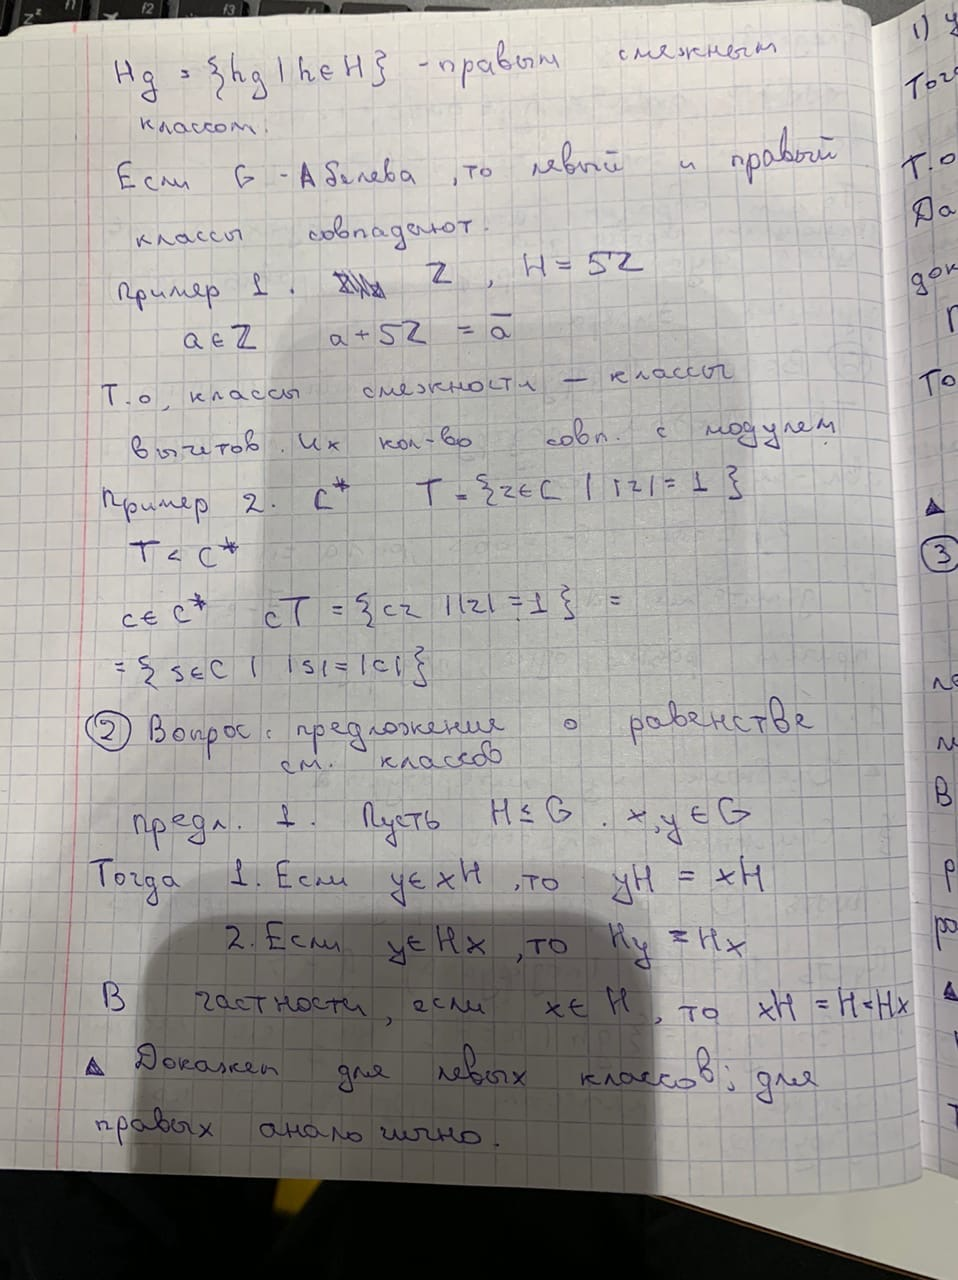 Hg = {hg | h ∈ H} - правым смежным
классом.
Если G - Абелева, то левый и правый
классы совпадают.
Пример 1. Z, H = 5Z
a ∈ Z a + 5Z = a̅
Т.о, классы смежности — классы
вычетов. Их кол-во совп. с модулем
Пример 2. C* T = {z ∈ C | |z| = 1}
T < C*
c ∈ C* cT = {cz | |z| = 1} =
= {s ∈ C | |s| = |c|}
② Вопрос: предложения о равенстве
см. классов
Предл. 1. Пусть H ≤ G. x, y ∈ G
Тогда 1. Если y ∈ xH, то yH = xH
2. Если y ∈ Hx, то Hy = Hx
В частности, если x ∈ H, то xH = H = Hx
▲ Докажем для левых классов; для
правых аналогично.
1) у
Т.о
Да
док
То
▲
③
В
▲